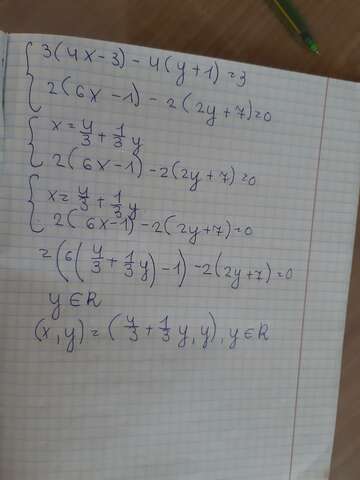 3(4x-3)-4(y+1)=3
2(6x-1)-2(2y+7)=0
x=4/3+1/3y
2(6x-1)-2(2y+7)=0
x=4/3+1/3y
2(6x-1)-2(2y+7)=0
=(6(4/3+1/3y)-1)-2(2y+7)=0
y∈R
(x,y)=(4/3+1/3y,y),y∈R